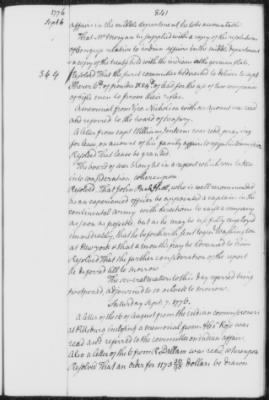 1776 841
Sept 6 affairs in the middle department all he be accountable
That Mr Morgan be supplied with a copy of the resolutions
of Congress relative to indian affairs in the middle department
a copy of the treaty held with the indians at the german flats.
364 Resolved That the secret committee be directed to deliver to capt
of powder lb of lead for the use of two companies
of rifle men to form their
A memorial from Geo. Nicholson with an account was read
and referred to the board of treasury.
A letter from capt William was read, praying
for leave on account of his family affairs to
Resolved That leave be granted.
The board of war brought in a report which was taken
into consideration whereupon
Resolved That John Paul Schott, who is well recommended
as an experienced officer be appointed a captain in the
continental army with directions to raise a company
as soon as possible but as he may be usefully employed
immediately, that he be forthwith sent to gen. Washington
at New york & that a months pay be advanced to him
Resolved That the further consideration of the report
be deferred till to morrow
The several matters to this day referred being
postponed, adjourned to 10 oClock to morrow.
Saturday Sept. 7. 1776.
A letter of the of August from the indian commissioners
at Pittsburg inclosing a memorial from Alexr Ross was
read and referred to the committee on indian affairs.
Also a letter of the 6 from R. Dallam was read whereupon
Resolved That an order for 1173 dollars be drawn